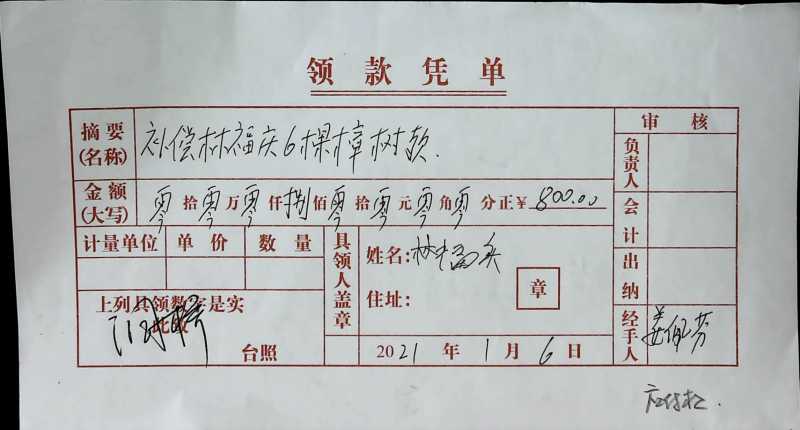 领款凭单
摘要 (名称) 补偿林福庆6棵樟树款. 审核
金额 (大写) 零拾零万零仟捌佰零拾零元零角零分正¥800.00 负责人
计量单位 单价 数量 具领人盖章 姓名:林福庆 会计
住址: 章 出纳
上列具领数字是实
此致
台照 2021年1月6日 经手人